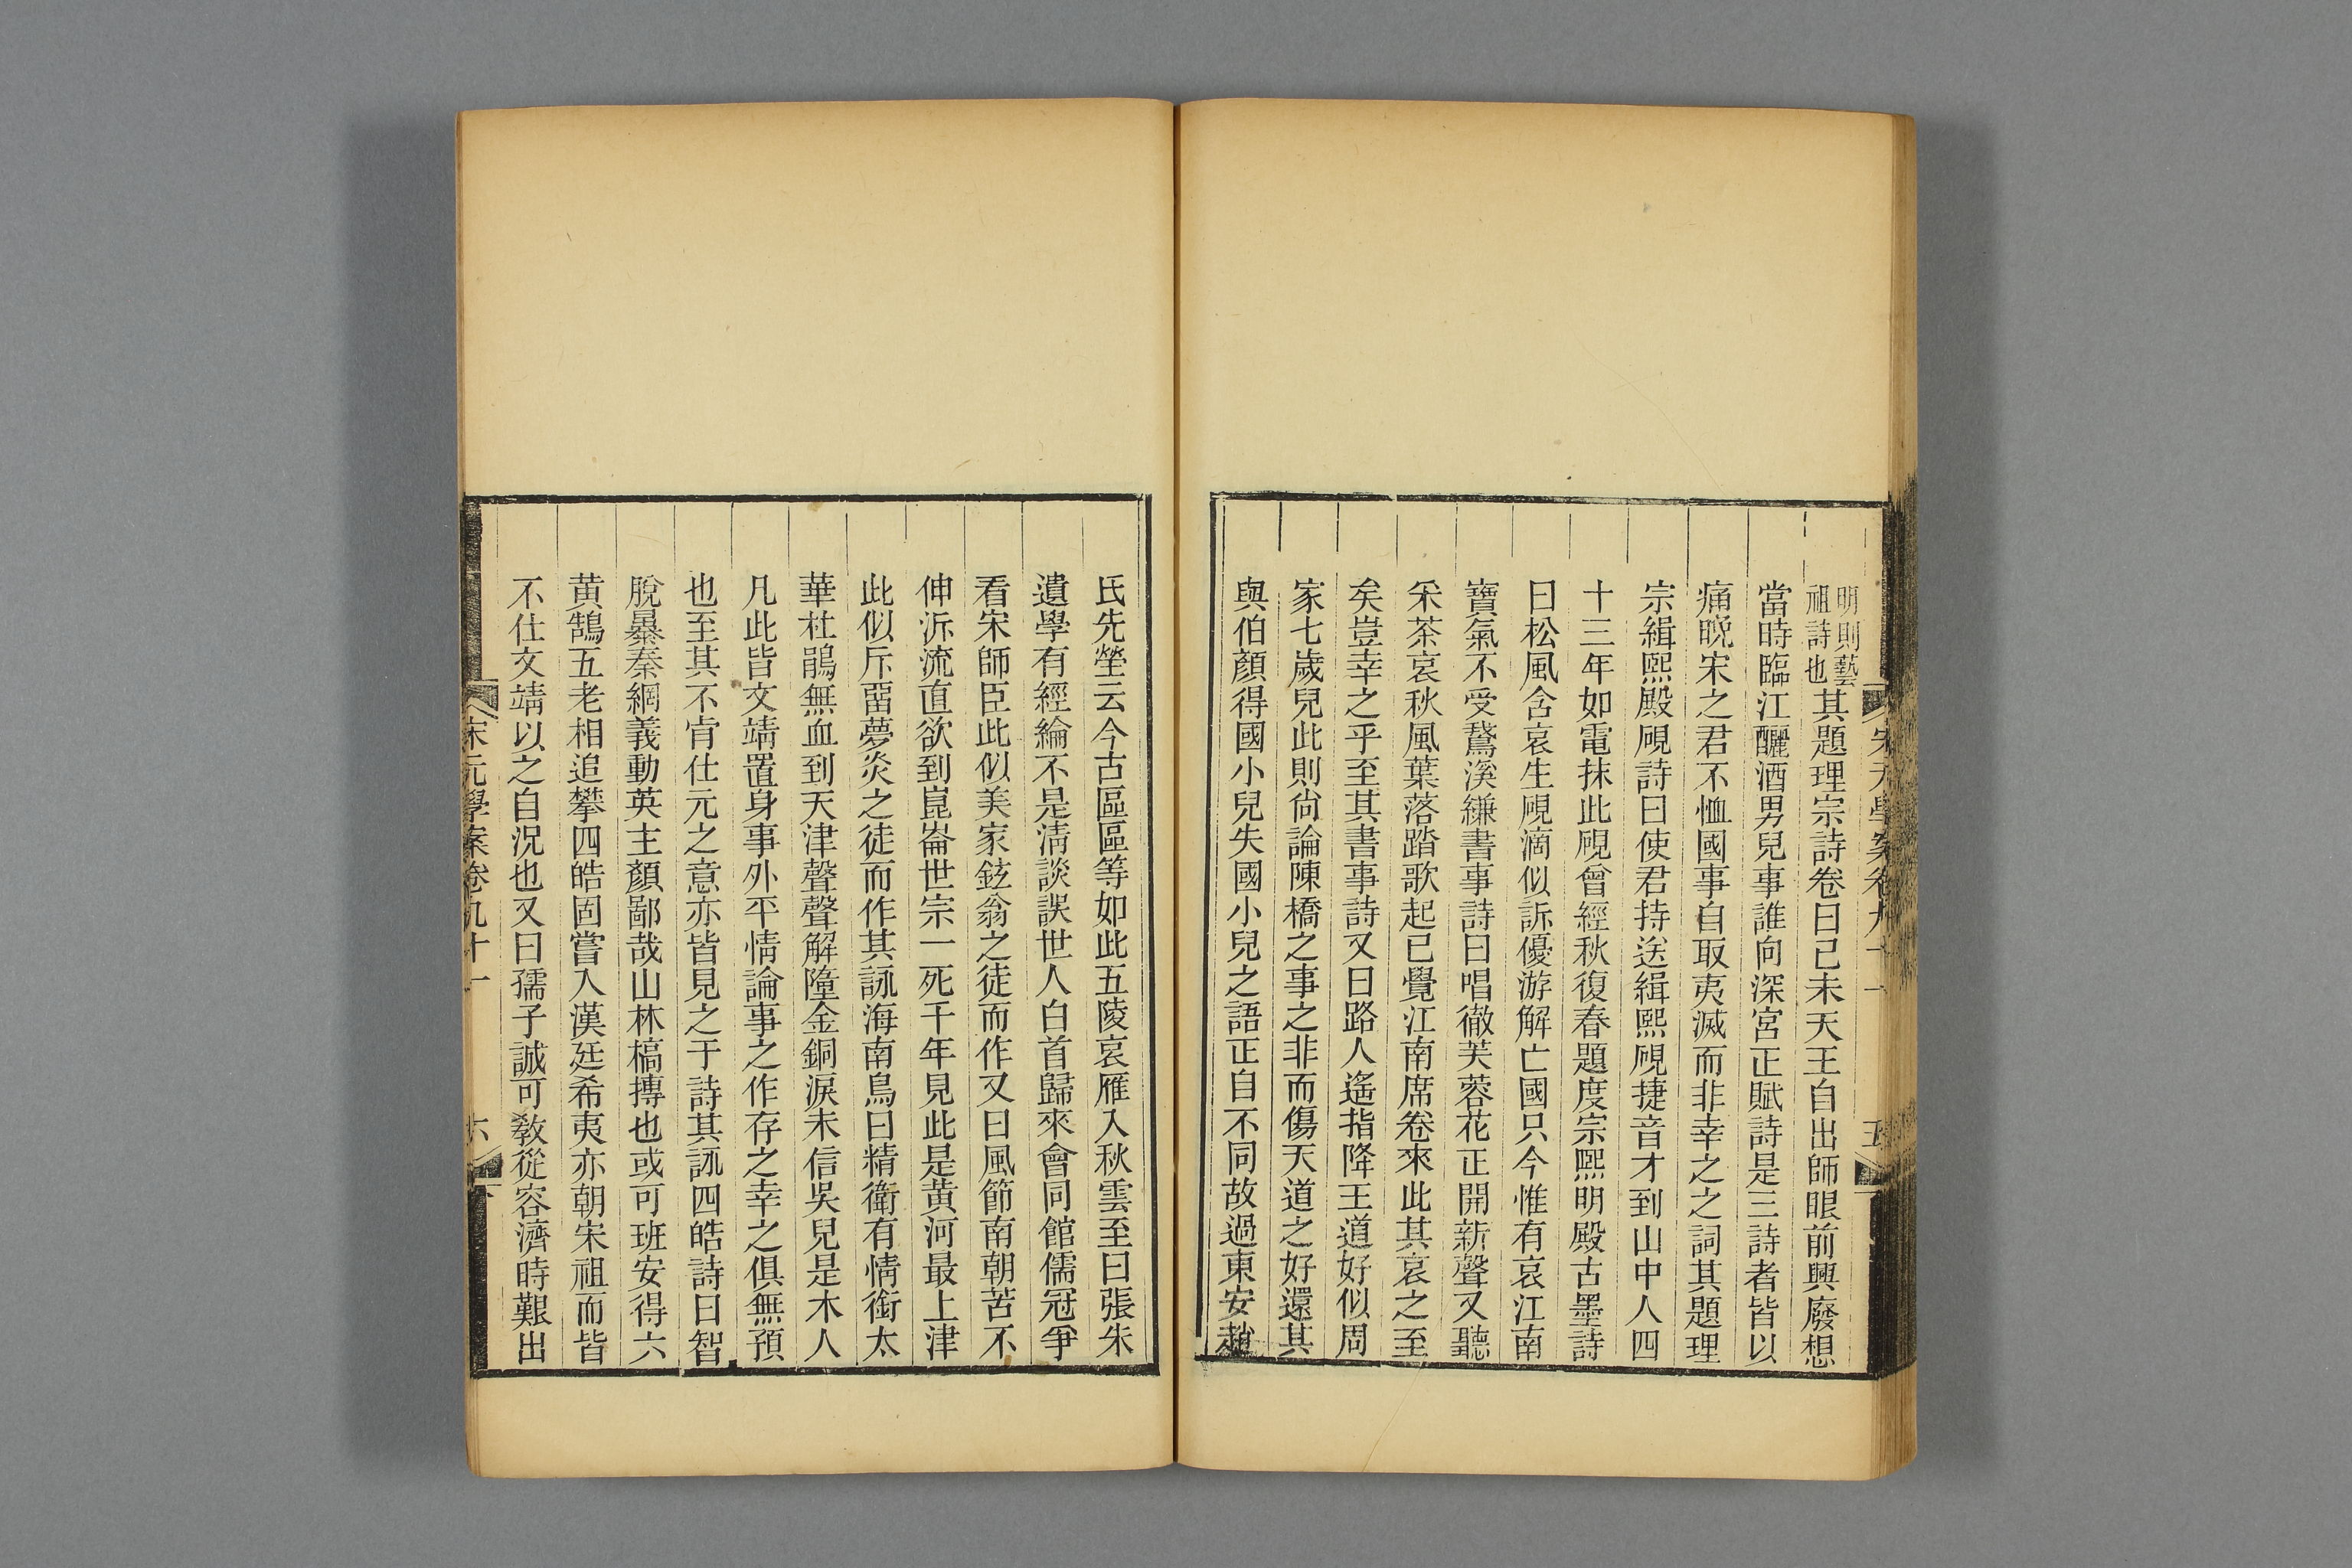 宋元學案卷九十一 五
明則藝
祖詩也
其題理宗詩卷曰己未天王自出師眼前興廢想
當時臨江釃酒男兒事誰向深宮正賦詩是三詩者皆以
痛晚宋之君不恤國事自取夷滅而非幸之之詞其題理
宗緝熙殿硯詩曰使君持送緝熙硯捷音才到山中人四
十三年如電抹此硯曾經秋復春題度宗熙明殿古墨詩
曰松風含哀生硯滴似訴優游解亡國只今惟有哀江南
寶氣不受鵞溪縑書事詩曰唱徹芙蓉花正開新聲又聽
采茶哀秋風葉落踏歌起已覺江南席卷來此其哀之至
矣豈幸之乎至其書事詩又曰路人遙指降王道好似周
家七歲兒此則尙論陳橋之事之非而傷天道之好還其
與伯顏得國小兒失國小兒之語正自不同故過東安趙
氏先塋云今古區區等如此五陵哀雁入秋雲至曰張朱
遺學有經綸不是淸談誤世人白首歸來會同館儒冠爭
看宋師臣此似美家鉉翁之徒而作又曰風節南朝苦不
伸泝流直欲到崑崙世宗一死千年見此是黃河最上津
此似斥畱夢炎之徒而作其詠海南鳥曰精衛有情銜太
華杜鵑無血到天津聲聲解墮金銅淚未信吳兒是木人
凡此皆文靖置身事外平情論事之作存之幸之俱無預
也至其不肯仕元之意亦皆見之于詩其詠四皓詩曰智
脫暴秦網義動英主顏鄙哉山林槁摶也或可班安得六
黃鵠五老相追攀四皓固嘗入漢廷希夷亦朝宋祖而皆
不仕文靖以之自況也又曰孺子誠可敎從容濟時艱出
宋元學案卷九十一 六